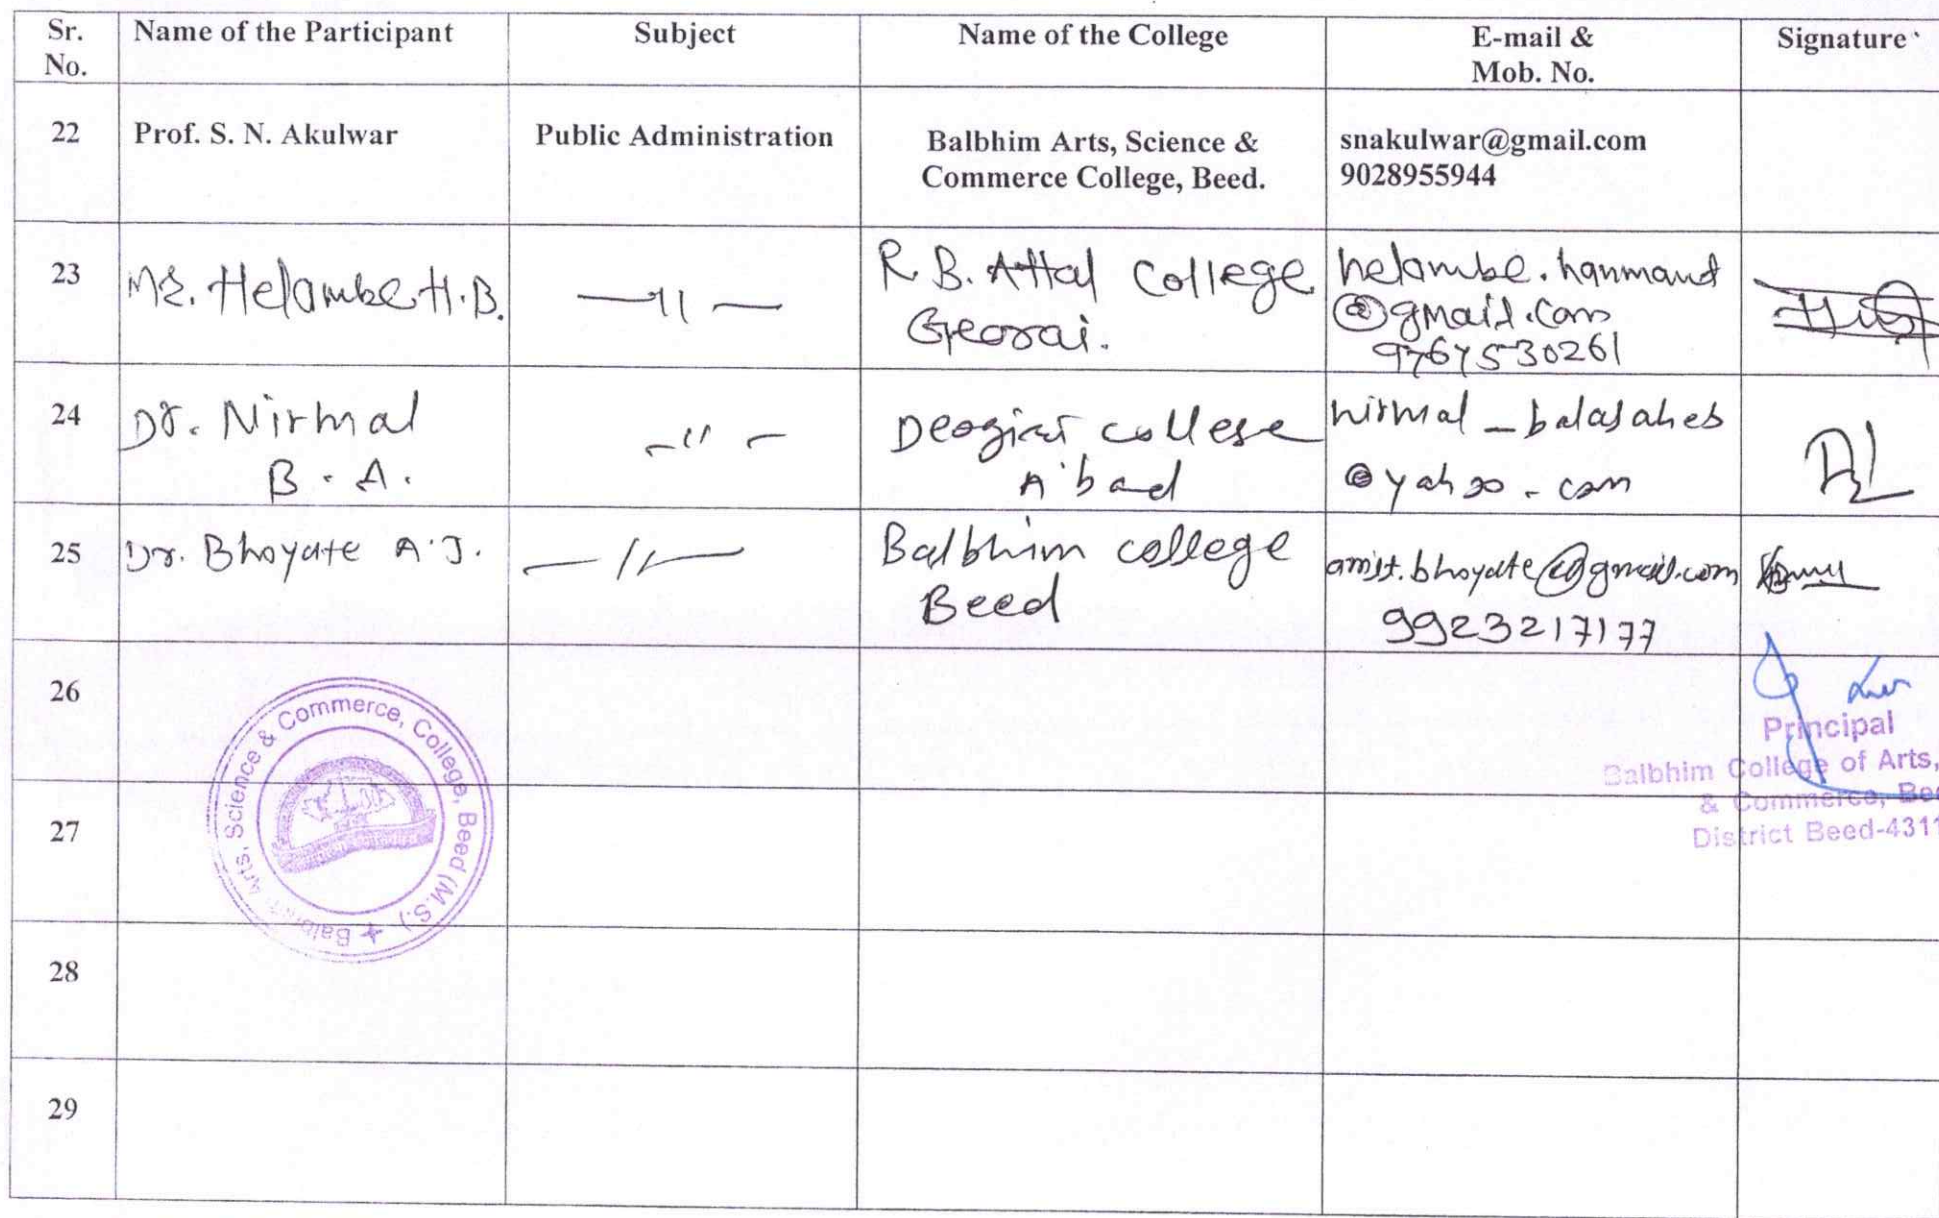 Sr. No.
Name of the Participant
Subject
Name of the College
E-mail &
Mob. No.
Signature
22
Prof. S. N. Akulwar
Public Administration
Balbhim Arts, Science &
Commerce College, Beed.
snakulwar@gmail.com
9028955944
23
Mr. Helambe H.B.
—11—
R. B. Attal College
Georai.
helambe.hanmant
@gmail.com
9767530261
24
Dr. Nirmal
B. A.
—11—
Deogiri college
A'bad
nirmal_balasaheb
@yahoo.com
25
Dr. Bhoyate A.J.
—11—
Balbhim college
Beed
amjt.bhoyate@gmail.com
9923217177
26
Arts, Science & Commerce, College, Beed (M.S.) + Balbhim
Principal
Balbhim College of Arts,
& Commerce, Bee
District Beed-4311
27
28
29